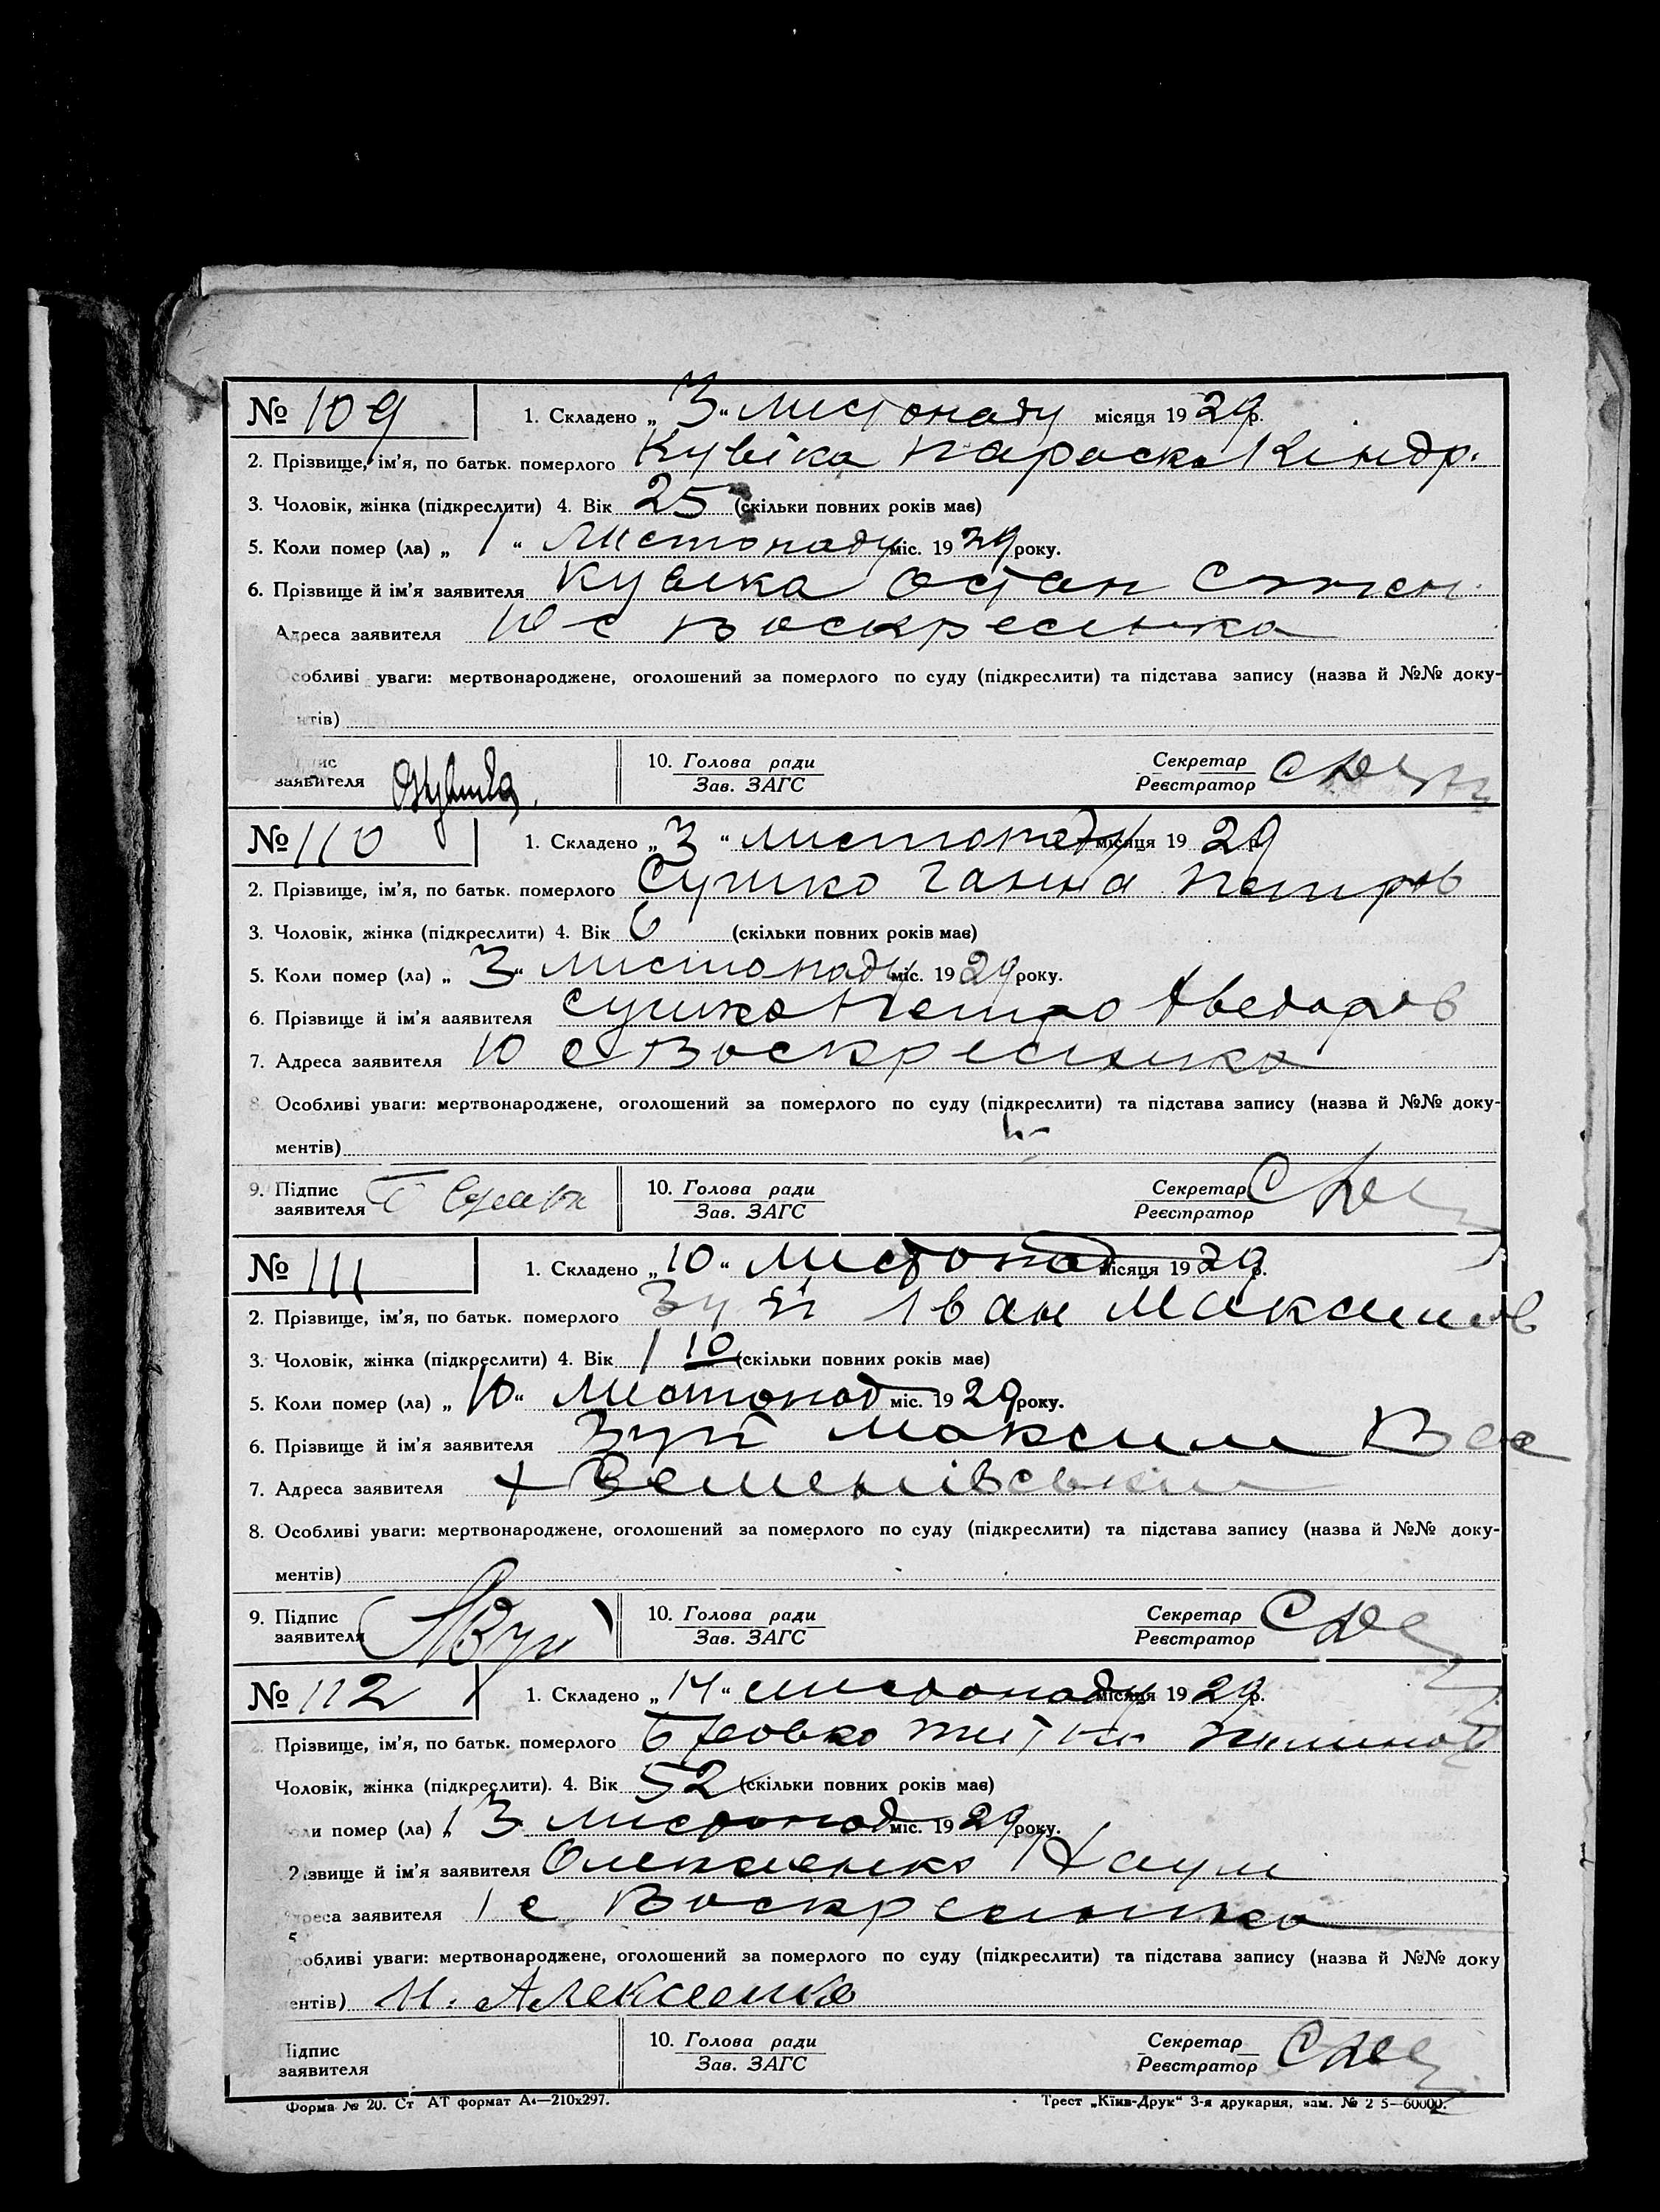 № 109 1. Складено „ 3 “ Листопаду місяця 19 29 р.
2. Прізвище, ім'я, по батьк. померлого Кувіка Параска Кіндр.
3. Чоловік, жінка (підкреслити) 4. Вік 25 (скільки повних років має)
5. Коли помер (ла) „ 1 “ Листопаду міс. 19 29 року.
6. Прізвище й ім'я заявителя Кувіка Остап
Адреса заявителя Ю с Воскресенка
Особливі уваги: мертвонароджене, оголошений за померлого по суду (підкреслити) та підстава запису (назва й №№ доку-
нтів)
заявителя
10. Голова ради
Зав. ЗАГС
Секретар
Реєстратор
№ 110 1. Складено „ 3 “ листопаду місяця 19 29
2. Прізвище, ім'я, по батьк. померлого Сушко Ганна Петров
3. Чоловік, жінка (підкреслити) 4. Вік 6 (скільки повних років має)
5. Коли помер (ла) „ 3 “ листопаду міс. 19 29 року.
6. Прізвище й ім'я ааявителя Сушко Петро
7. Адреса заявителя Ю с Воскресенка
8. Особливі уваги: мертвонароджене, оголошений за померлого по суду (підкреслити) та підстава запису (назва й №№ доку-
ментів)
9. Підпис
заявителя
10. Голова ради
Зав. ЗАГС
Секретар
Реєстратор
№ 111 1. Складено „ 10 “ Листопад місяця 19 29 р.
2. Прізвище, ім'я, по батьк. померлого Зуй Іван Максимов
3. Чоловік, жінка (підкреслити) 4. Вік 1 10 (скільки повних років має)
5. Коли помер (ла) „ 10 “ Листопад міс. 19 29 року.
6. Прізвище й ім'я заявителя Зуй Максим Вас
7. Адреса заявителя
8. Особливі уваги: мертвонароджене, оголошений за померлого по суду (підкреслити) та підстава запису (назва й №№ доку-
ментів)
9. Підпис
заявителя
10. Голова ради
Зав. ЗАГС
Секретар
Реєстратор
№ 112 1. Складено „ 14 “ листопаду місяця 19 29 р.
Прізвище, ім'я, по батьк. померлого
Чоловік, жінка (підкреслити). 4. Вік 52 (скільки повних років має)
ли помер (ла) „ 13 листопад міс. 19 29 року.
ізвище й ім'я заявителя Олексієнко Наум
реса заявителя 1 с Воскресенка
собливі уваги: мертвонароджене, оголошений за померлого по суду (підкреслити) та підстава запису (назва й №№ доку
ентів) Н. Алексеенко
Підпис
заявителя
10. Голова ради
Зав. ЗАГС
Секретар
Реєстратор
Форма № 20. Ст АТ формат А4—210x297. Трест „Київ-Друк“ 3-я друкарня, зам. № 2 5—60000.